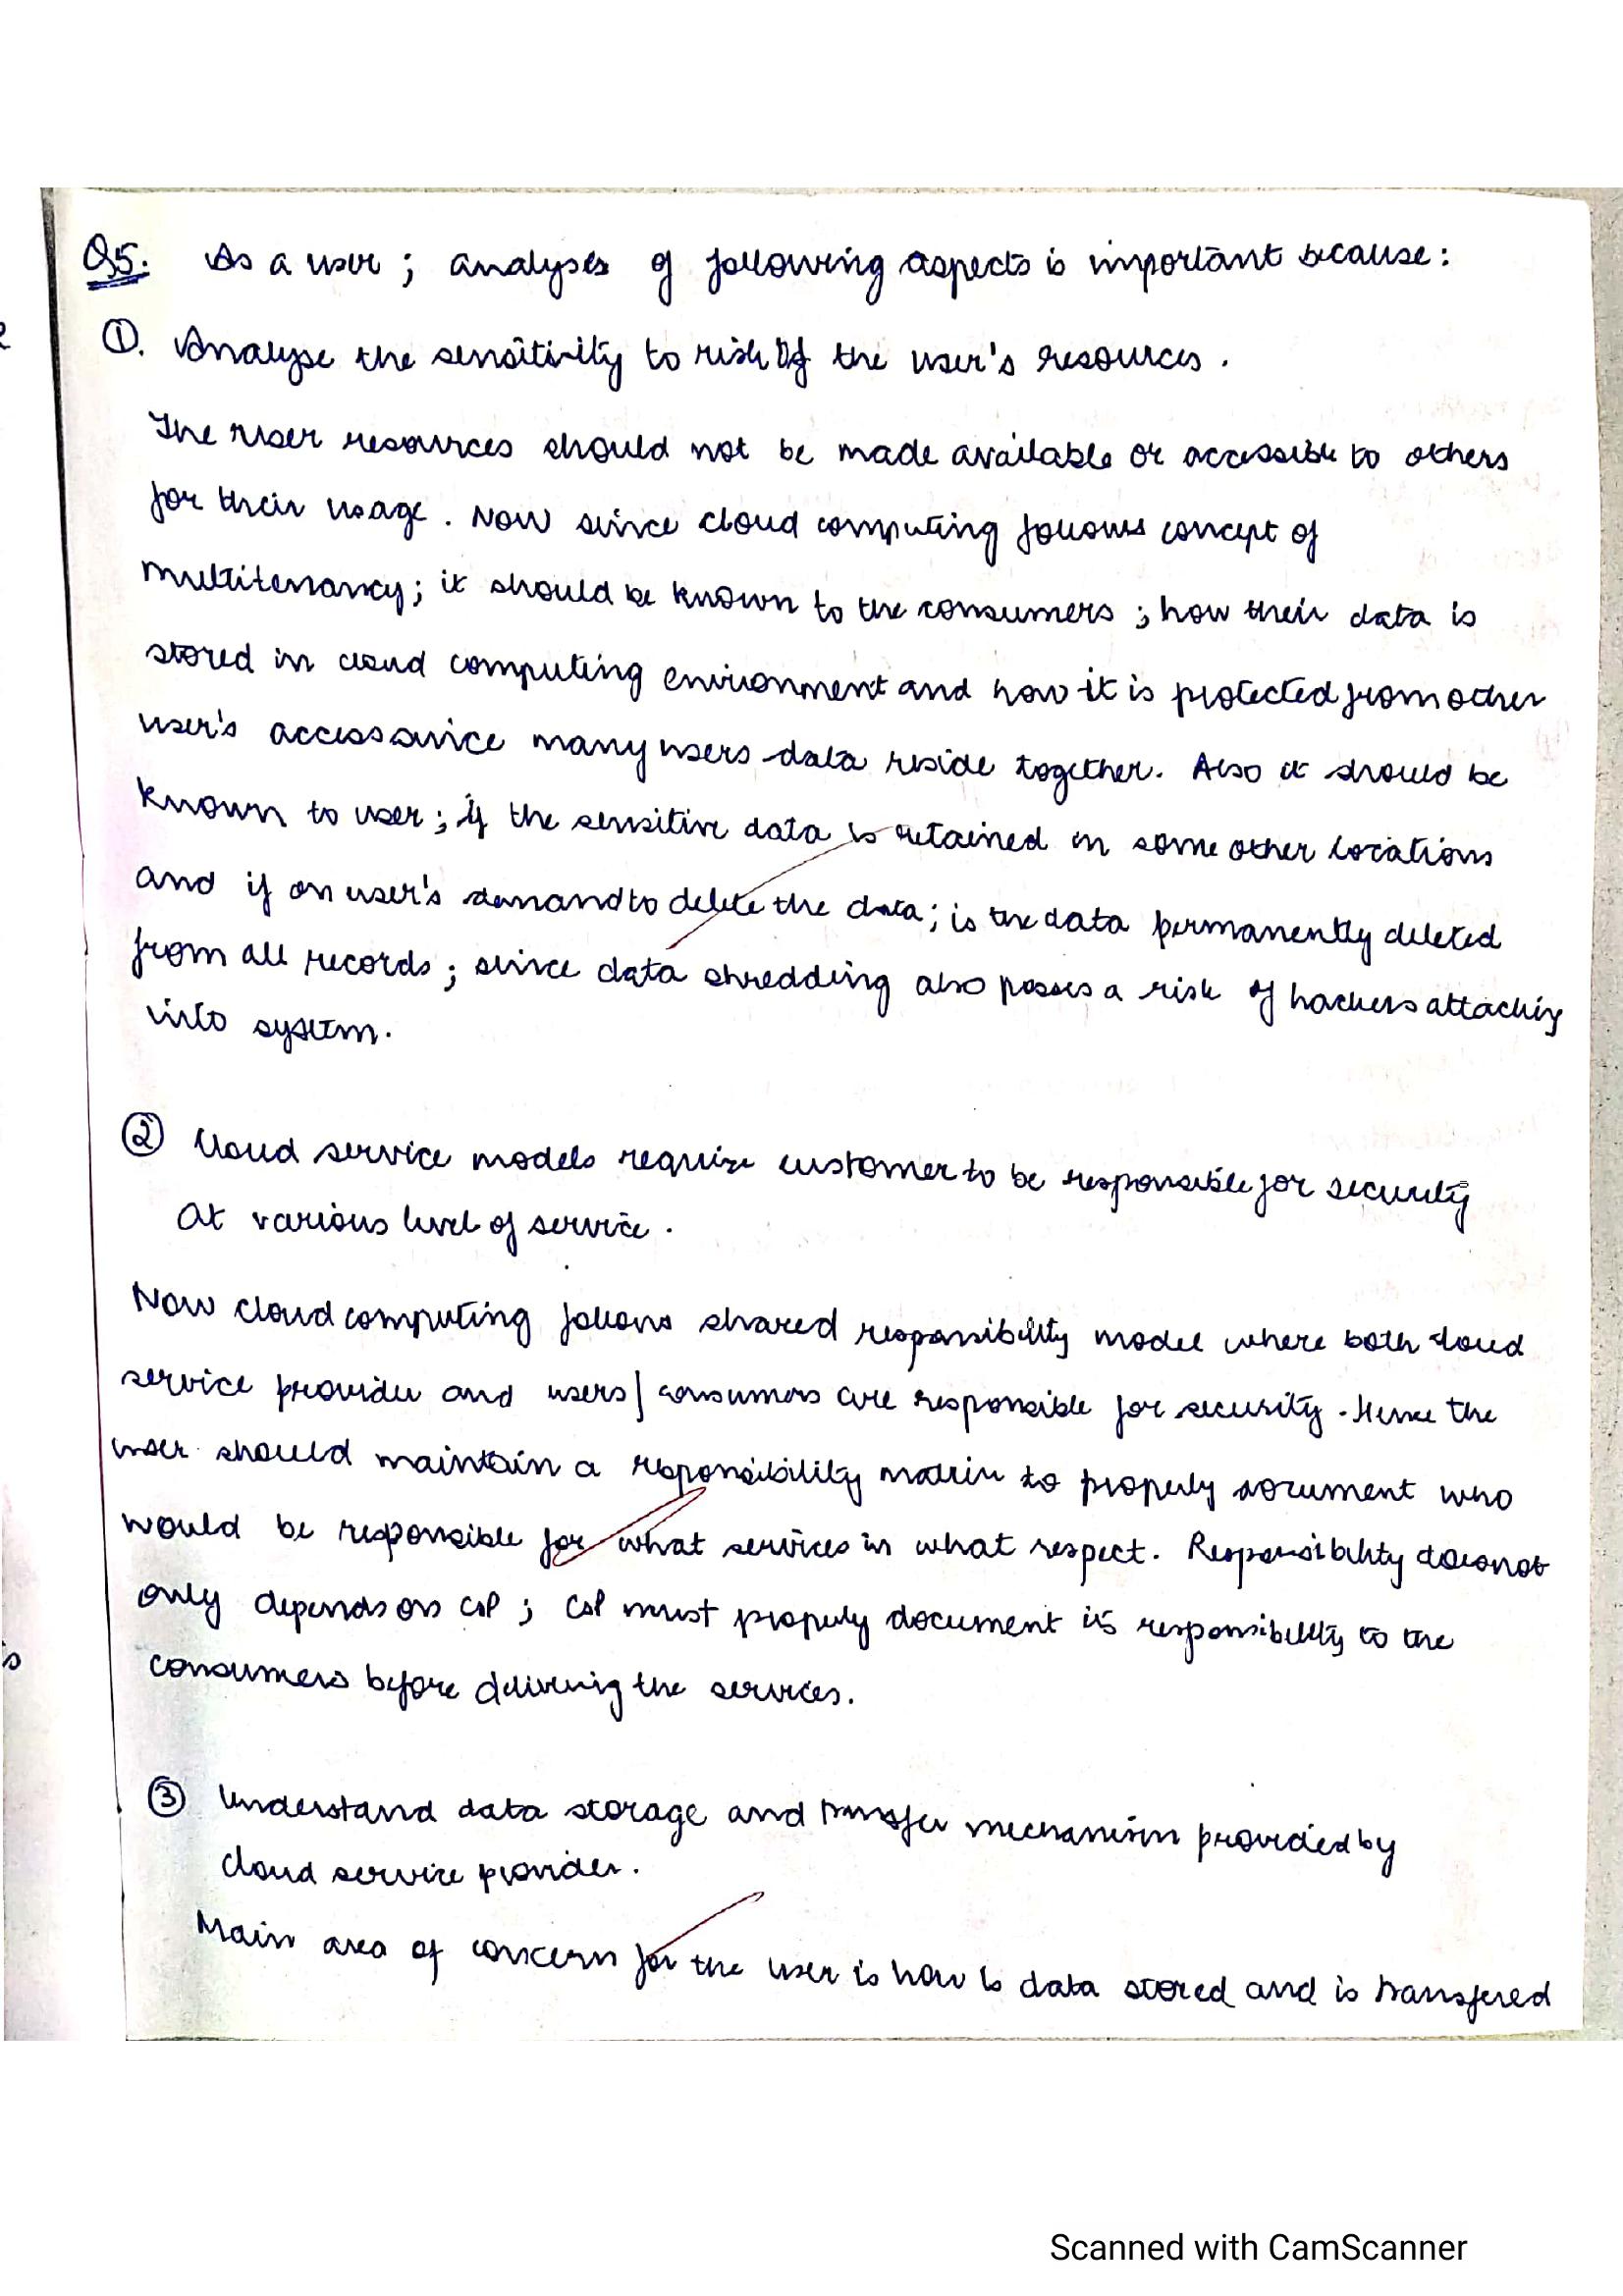 Q5. As a user ; analyses of following aspects is important because :
①. Analyse the sensitivity to risk of the user's resources .
The user resources should not be made available or accessible to others
for their usage . Now since cloud computing follows concept of
multitenancy ; it should be known to the consumers ; how their data is
stored in cloud computing environment and how it is protected from other
user's access since many users data reside together. Also it should be
known to user ; if the sensitive data is retained in some other locations
and if on user's demand to delete the data ; is the data permanently deleted
from all records ; since data shredding also posses a risk of hackers attacking
into system.
② Cloud service models require customer to be responsible for security
at various level of service .
Now cloud computing follows shared responsibility model where both cloud
service provider and users/consumers are responsible for security . Hence the
user should maintain a responsibility matrix to properly document who
would be responsible for what services in what respect. Responsibility does not
only depends on CSP ; CSP must properly document its responsibility to the
consumers before delivering the services.
③ Understand data storage and transfer mechanism provided by
cloud service provider .
Main area of concern for the user is how is data stored and is transfered
Scanned with CamScanner